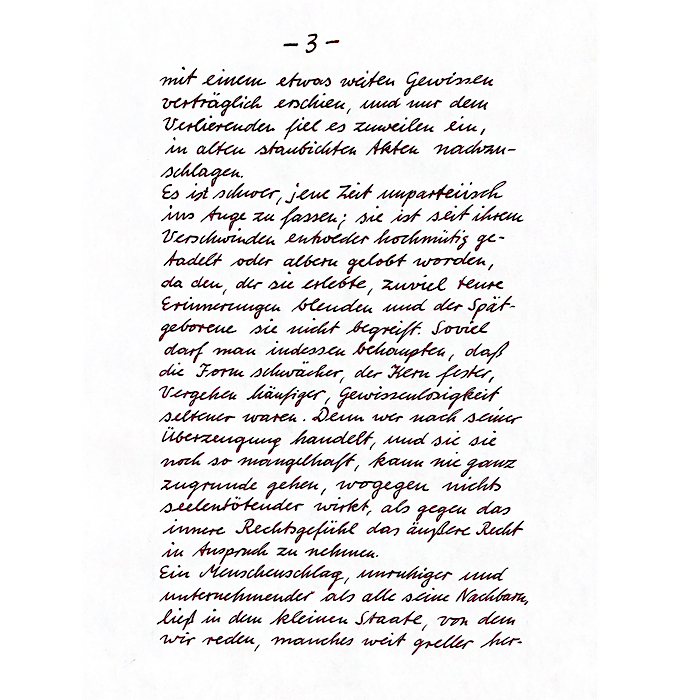 – 3 –
mit einem etwas weiten Gewissen
verträglich erschien, und nur dem
Verlierenden fiel es zuweilen ein,
in alten staubichten Akten nachzu-
schlagen.
Es ist schwer, jene Zeit unparteiisch
ins Auge zu fassen; sie ist seit ihrem
Verschwinden entweder hochmütig ge-
tadelt oder albern gelobt worden,
da den, der sie erlebte, zuviel teure
Erinnerungen blenden und der Spät-
geborene sie nicht begreift. Soviel
darf man indessen behaupten, daß
die Form schwächer, der Kern fester,
Vergehen häufiger, Gewissenlosigkeit
seltener waren. Denn wer nach seiner
Überzeugung handelt, und sie sie
noch so mangelhaft, kann nie ganz
zugrunde gehen, wogegen nichts
seelentötender wirkt, als gegen das
innere Rechtsgefühl das äußere Recht
in Anspruch zu nehmen.
Ein Menschenschlag, unruhiger und
unternehmender als alle seine Nachbarn,
ließ in dem kleinen Staate, von dem
wir reden, manches weit greller her-